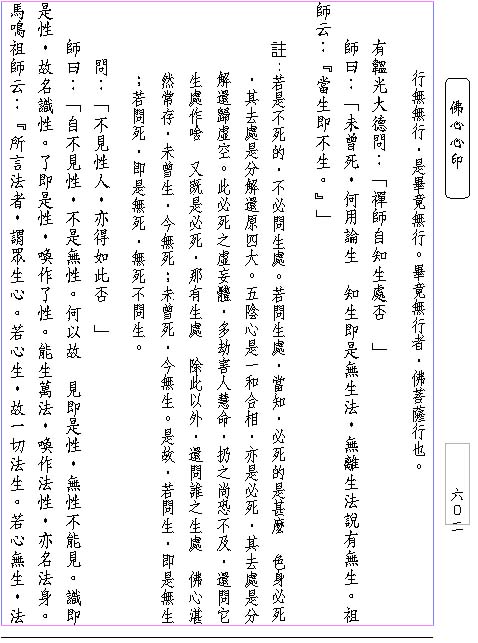 佛心心印
六○二
行無無行，是畢竟無行。畢竟無行者，佛菩薩行也。
有韞光大德問：「禪師自知生處否　」
師曰：「未曾死，何用論生　知生即是無生法，無離生法說有無生。祖
師云：『當生即不生。』」
註：若是不死的，不必問生處。若問生處，當知，必死的是甚麼　色身必死
，其去處是分解還原四大。五陰心是一和合相，亦是必死，其去處是分
解還歸虛空。此必死之虛妄體，多劫害人慧命，扔之尚恐不及，還問它
生處作啥　又既是必死，那有生處　除此以外，還問誰之生處　佛心湛
然常存，未曾生，今無死；未曾死，今無生。是故，若問生，即是無生
；若問死，即是無死，無死不問生。
問：「不見性人，亦得如此否　」
師曰：「自不見性，不是無性。何以故　見即是性，無性不能見。識即
是性，故名識性。了即是性，喚作了性。能生萬法，喚作法性，亦名法身。
馬鳴祖師云：『所言法者，謂眾生心。若心生，故一切法生。若心無生，法